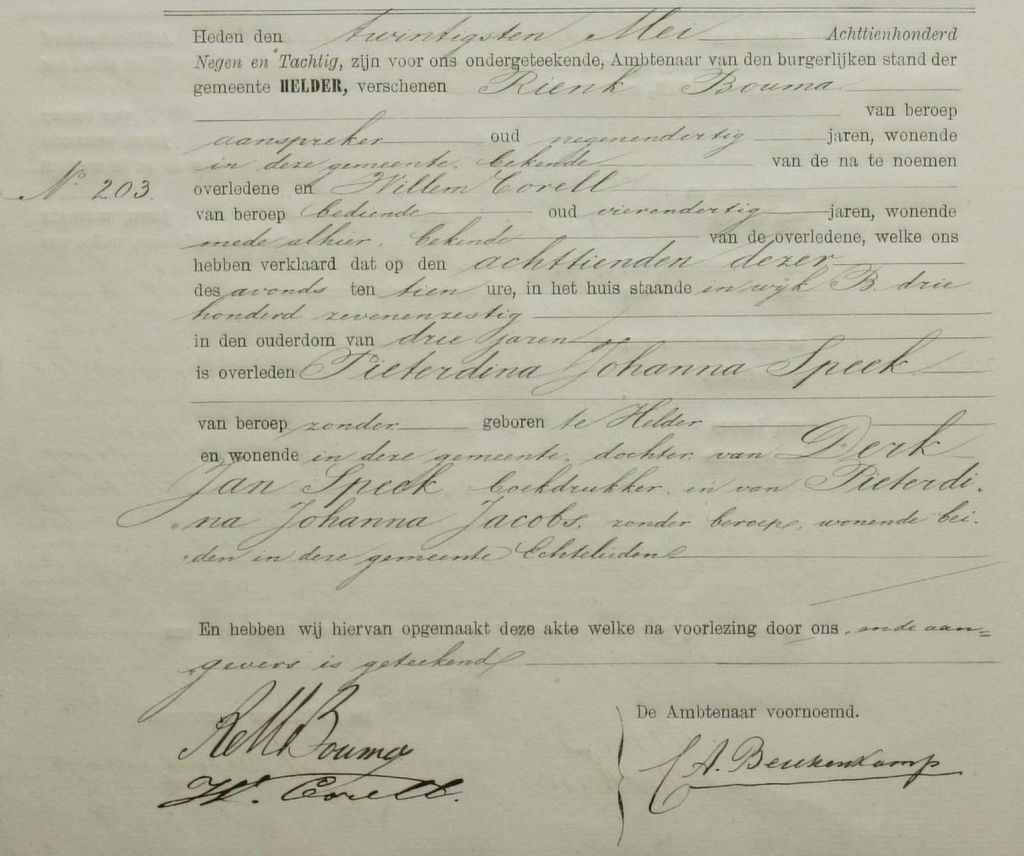 Heden den twintigsten Mei Achttienhonderd
Negen en Tachtig, zijn voor ons ondergeteekende, Ambtenaar van den burgerlijken stand der
gemeente HELDER, verschenen Rienk Bouma
van beroep
aanspreker oud negenendertig jaren, wonende
in deze gemeente, bekende van de na te noemen
Nº 203.
overledene en Willem Corell
van beroep bediende oud vierendertig jaren, wonende
mede alhier, bekende van de overledene, welke ons
hebben verklaard dat op den achttienden dezer
des avonds ten tien ure, in het huis staande in wijk B. drie
honderd zevenenzestig
in den ouderdom van drie jaren
is overleden Pieterdina Johanna Speek
van beroep zonder geboren te Helder
en wonende in deze gemeente, dochter van Derk
Jan Speek, boekdrukker, en van Pieterdi-
na Johanna Jacobs, zonder beroep, wonende bei-
den in deze gemeente Echtelieden
En hebben wij hiervan opgemaakt deze akte welke na voorlezing door ons, en de aan=
gevers is geteekend
De Ambtenaar voornoemd.
Bouma
W. Corell.
A. Beukenkamp